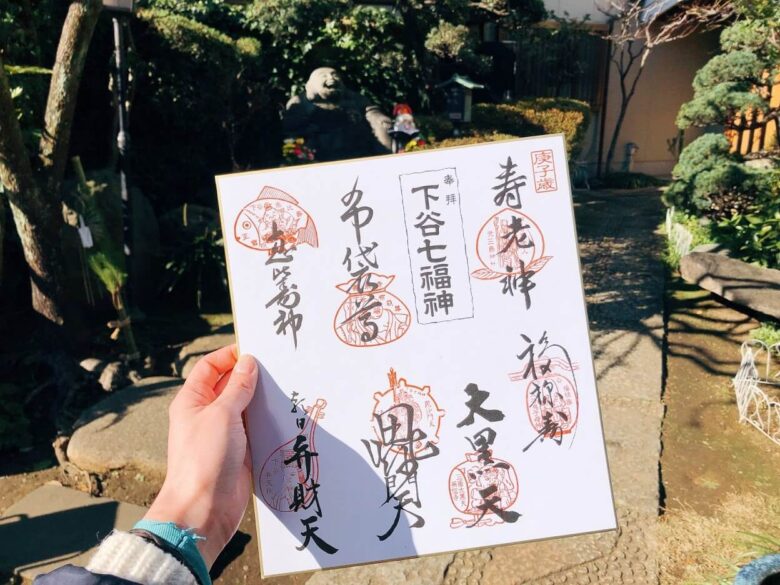 庚子歳
寿老神
福禄寿
奉拝
下谷七福神
大黒天
布袋尊
毘沙門天
恵比寿神
朝日弁財天